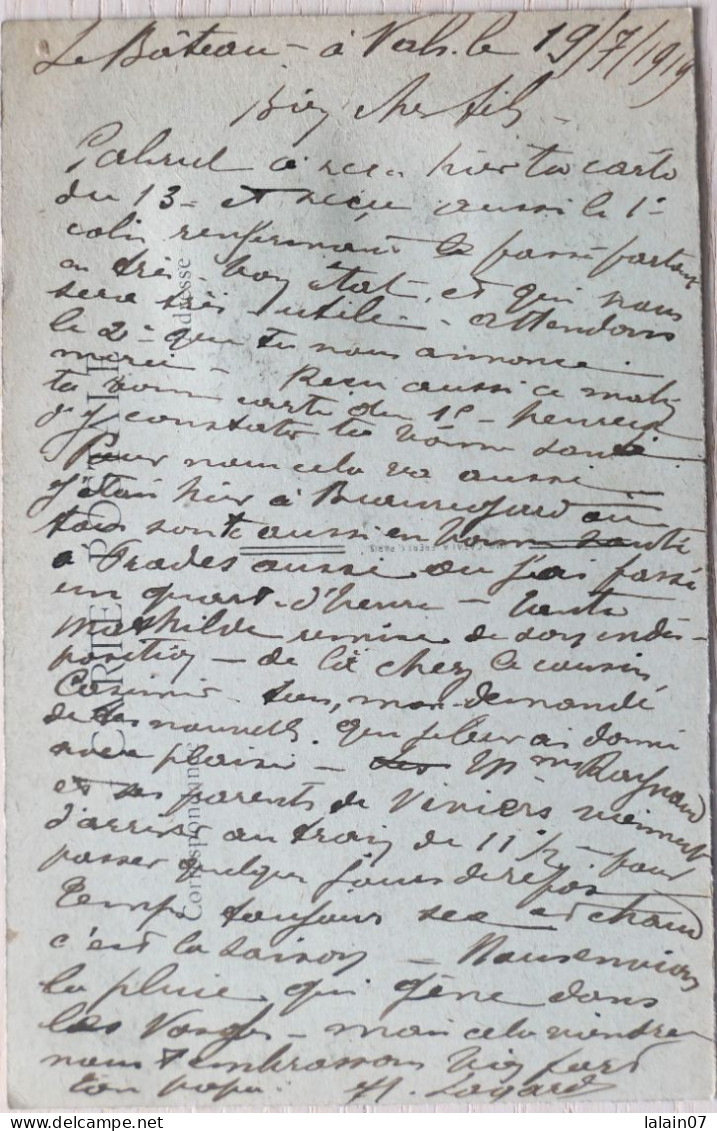 Le Bâteau - à Vals. le 19/7/1919
Bien cher fils -
Gabriel a reçu hier ta carte
du 13 - et reçu aussi le 1er
colis renfermant le passe partout
en très bon état, et qui nous
sera très utile - attendons
le 2e que tu nous annonce -
merci - Reçu aussi ce matin
ta bonne carte du 15 - heureux
d'y constater ta bonne santé
Pour nous cela va aussi -
j'étais hier à Beauregard où
tous sont aussi en bonne santé
à Prades aussi où j'ai passé
un quart-d'heure - tante
Mathilde remise de son indis-
position - de là chez le cousin
Casimir - tous, m'on demandé
de tes nouvelles. que je leur ai donné
avec plaisir - Mme Raynaud
et ses parents de Viviers viennent
d'arriver au train de 11 h 1/2 - pour
passer quelques jours de repos -
Temps toujours sec et chaud
c'est la saison - Nous envions
la pluie qui gêne dans
les Vosges - mais cela viendra
nous t'embrassons bien fort
ton papa. H. Lagarde
CARTE POSTALE
Correspondance
Adresse
lalain07